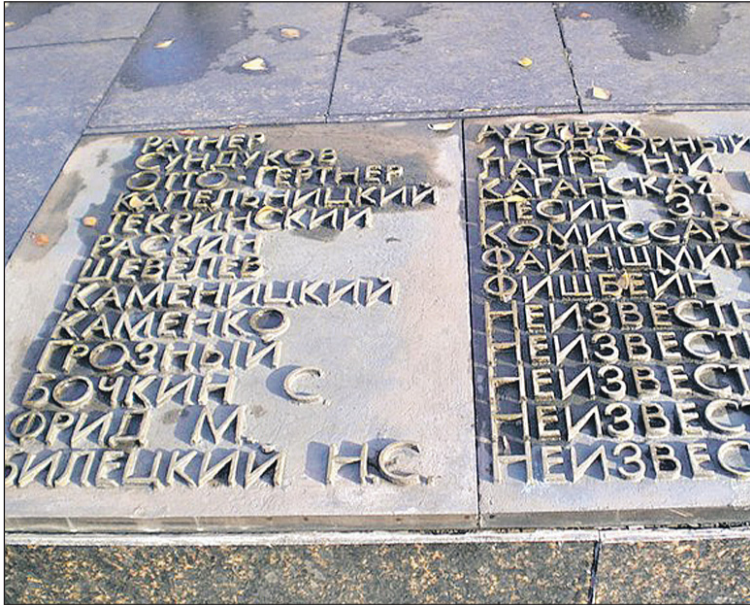 РАТНЕР
СУНДУКОВ
ОТТО-ГЕРТНЕР
КАПЕЛЬНИЦКИЙ
ТЕКРИНСКИЙ
РАСКИН
ШЕВЕЛЕВ
КАМЕНИЦКИЙ
КАМЕНКО
ГРОЗНЫЙ
БОЧКИН С.
ФРИД М.
БИЛЕЦКИЙ Н.С.
АУЭРБАХ
ПОДГОРНЫЙ
ЛАНГЕ Н И
КАГАНСКАЯ
ТЕСИН З Б
КОМИССАРО
ФАИНШМИД
ФИШБЕЙН
НЕИЗВЕСТ
НЕИЗВЕСТ
НЕИЗВЕСТ
НЕИЗВЕС
НЕИЗВЕС